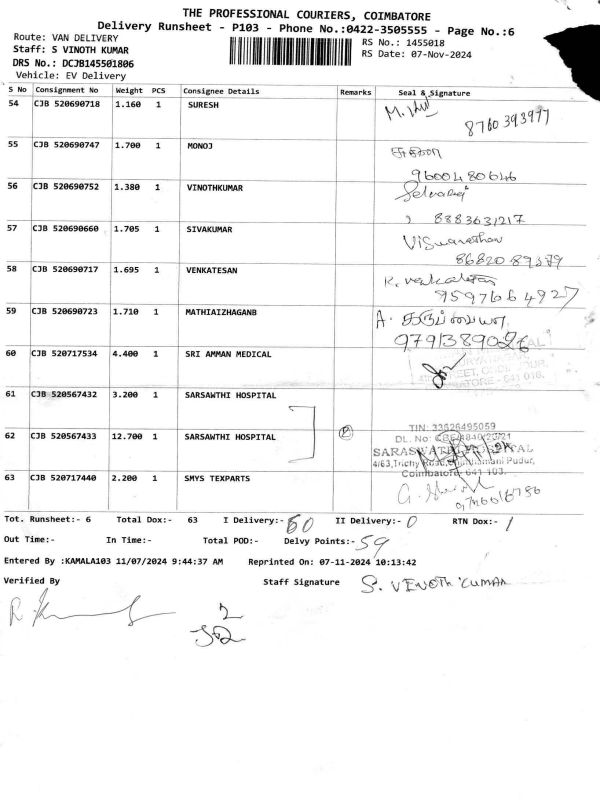 THE PROFESSIONAL COURIERS, COIMBATORE
Delivery Runsheet - P103 - Phone No.:0422-3505555 - Page No.:6
Route: VAN DELIVERY
RS No.: 1455018
Staff: S VINOTH KUMAR
RS Date: 07-Nov-2024
DRS No.: DCJB145501806
Vehicle: EV Delivery
S No Consignment No Weight PCS Consignee Details Remarks Seal & Signature
54 CJB 520690718 1.160 1 SURESH
8760393977
55 CJB 520690747 1.700 1 MONOJ
9600480646
56 CJB 520690752 1.380 1 VINOTHKUMAR Selvaraj
8883631217
57 CJB 520690660 1.705 1 SIVAKUMAR Viswanathan
8682089379
58 CJB 520690717 1.695 1 VENKATESAN K. Venkatesan
9597664927
59 CJB 520690723 1.710 1 MATHIAIZHAGANB A.
9791389026
60 CJB 520717534 4.400 1 SRI AMMAN MEDICAL
61 CJB 520567432 3.200 1 SARSAWTHI HOSPITAL
TIN: 33626495059
62 CJB 520567433 12.700 1 SARSAWTHI HOSPITAL 2
DL. No: CBE/4840/23/21
SARASWATHI HOSPITAL
4/63,Trichy Road,Chinthamani Pudur,
Coimbatore- 641 103.
63 CJB 520717440 2.200 1 SMYS TEXPARTS
Tot. Runsheet:- 6 Total Dox:- 63 I Delivery:- 60 II Delivery:- 0 RTN Dox:- 1
Out Time:- In Time:- Total POD:- Delvy Points:- 59
Entered By :KAMALA103 11/07/2024 9:44:37 AM Reprinted On: 07-11-2024 10:13:42
Verified By Staff Signature S. VENOTH KUMAR